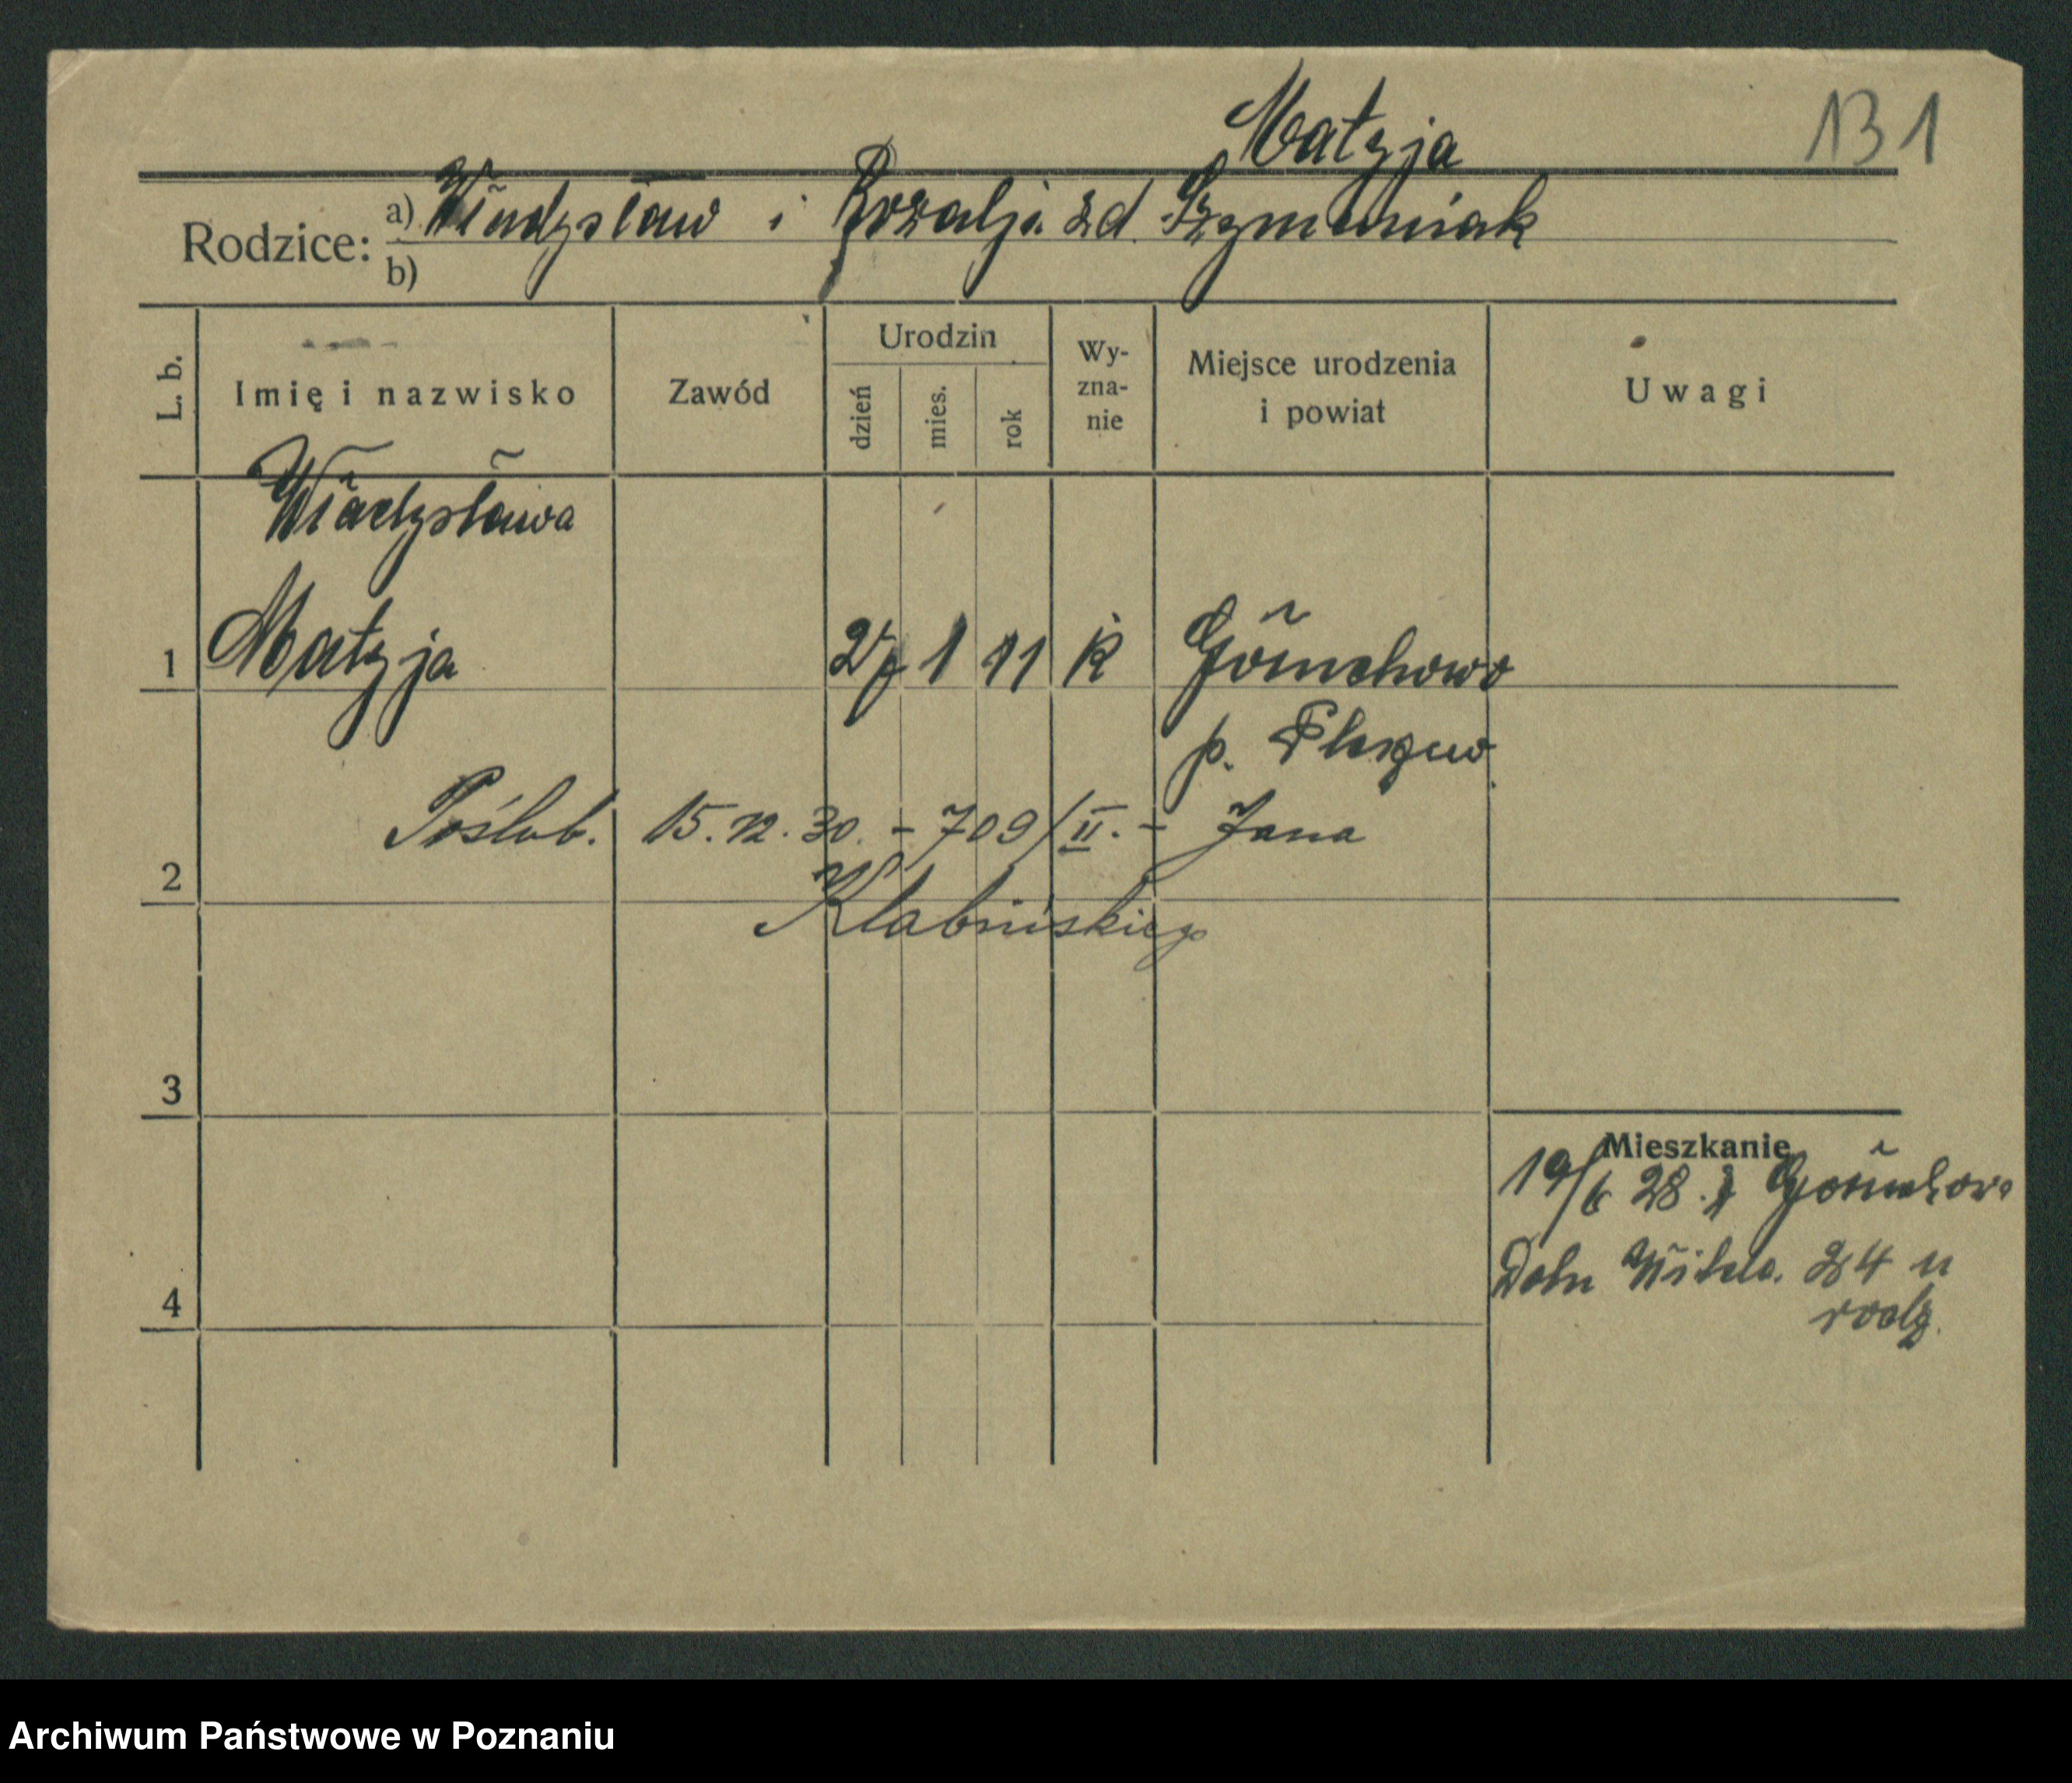 Matyja
131
Rodzice:
a) Władysław i Rozalji zd. Szymaniak
b)
L. b.
Imię i nazwisko
Zawód
Urodzin
dzień
mies.
rok
Wy-
zna-
nie
Miejsce urodzenia
i powiat
Uwagi
Władysława
1 Matyja 27 1 11 k
p.
Poślub. 15.12.30. - 709/II. - Jana
2
Klabińskiego
3
Mieszkanie
19/6 28. z
Doln Wilda. 24 u
rodz.
4
Archiwum Państwowe w Poznaniu